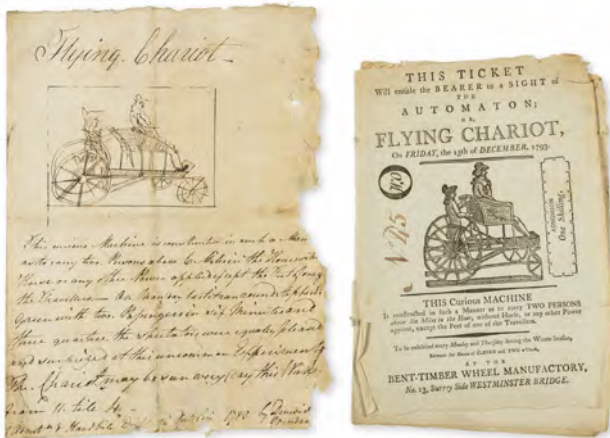 Flying Chariot
This curious Machine is constructed in such a Man
as to carry two Persons above 6 Miles in the Hour with
Horse or any other Power applied except the Feet of one of
the Travellers — On Tuesday last it ran round
Green with two Passengers in Six Minutes and
three quarters the Spectators were equally pleased
and surprized at this uncommon Experiment
The Chariot may be seen every day this Week
from 11 till 4
THIS TICKET
Will entitle the BEARER to a SIGHT of
THE
AUTOMATON;
OR,
FLYING CHARIOT,
On FRIDAY, the 13th of DECEMBER, 1793.
No. 5
ADMISSION
One Shilling.
THIS Curious MACHINE
Is constructed in such a Manner as to carry TWO PERSONS
above six Miles in the Hour, without Horse, or any other Power
applied, except the Feet of one of the Travellers.
To be exhibited every Monday and Thursday during the Winter Season,
Between the Hours of ELEVEN and TWO o'Clock,
AT THE
BENT-TIMBER WHEEL MANUFACTORY,
No. 13, Surry Side WESTMINSTER BRIDGE.